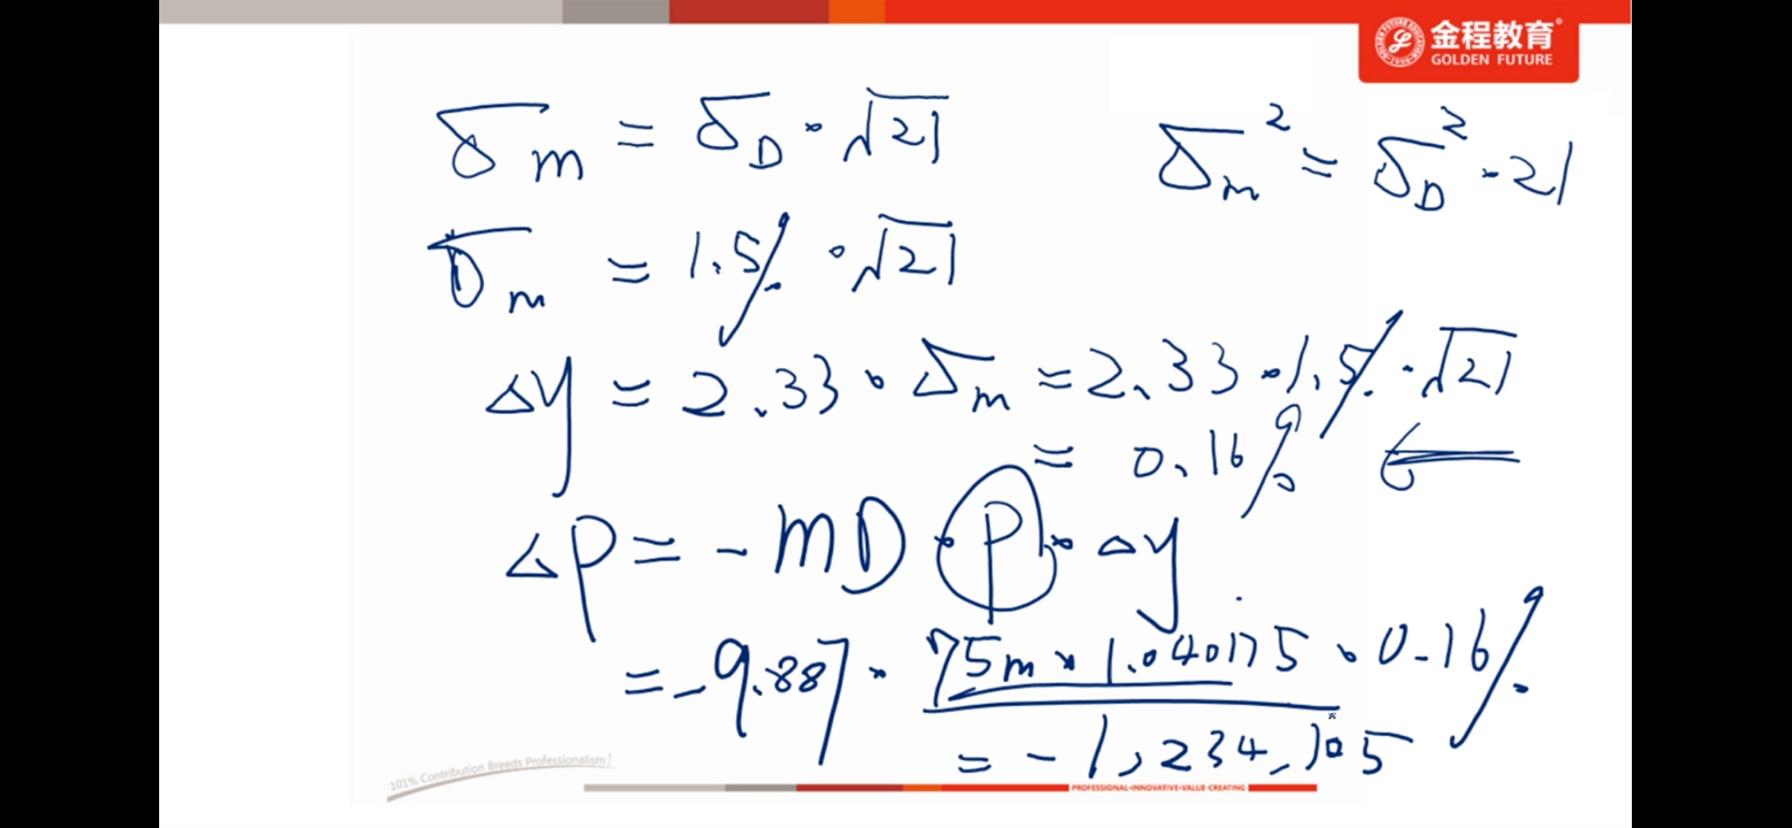 金程教育®
GOLDEN FUTURE
σm = σD · √21
σm² = σD² · 21
σm = 1.5% · √21
Δy = 2.33 · σm = 2.33 · 1.5% · √21
= 0.16%
ΔP = - MD · P · Δy
= - 9.887 · 75m × 1.040175 · 0.16%
= - 1,234,105
101% Contribution Breeds Professionalism!
PROFESSIONAL•INNOVATIVE•VALUE-CREATING